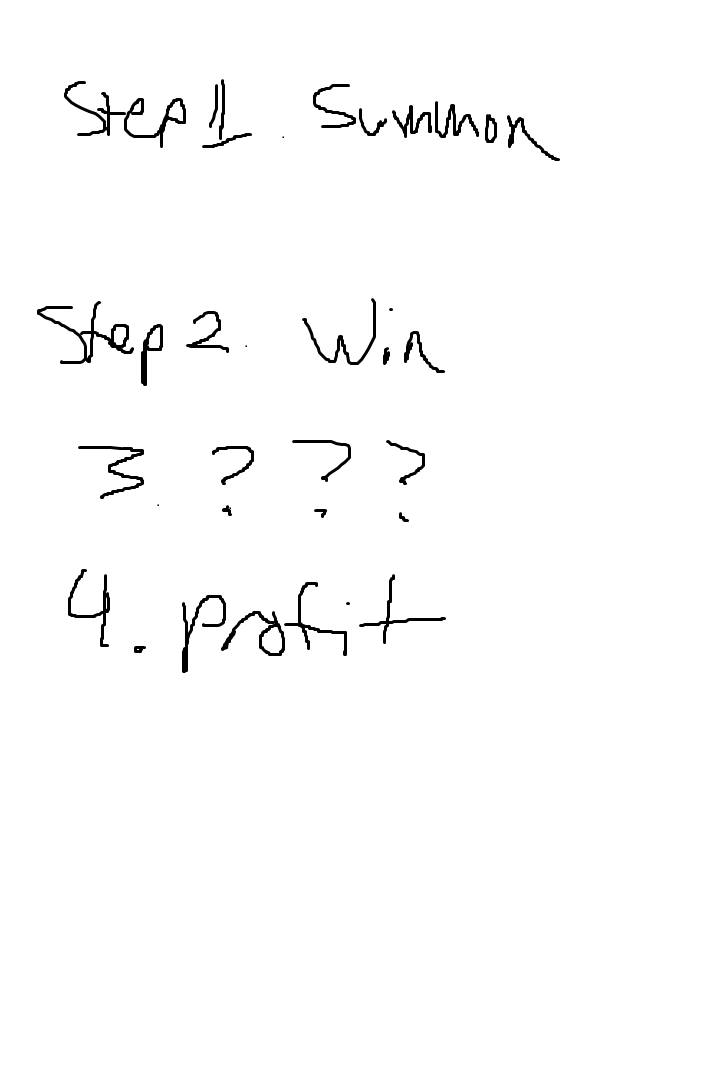 Step 1. Summon
Step 2. Win
3. ? ? ?
4. profit